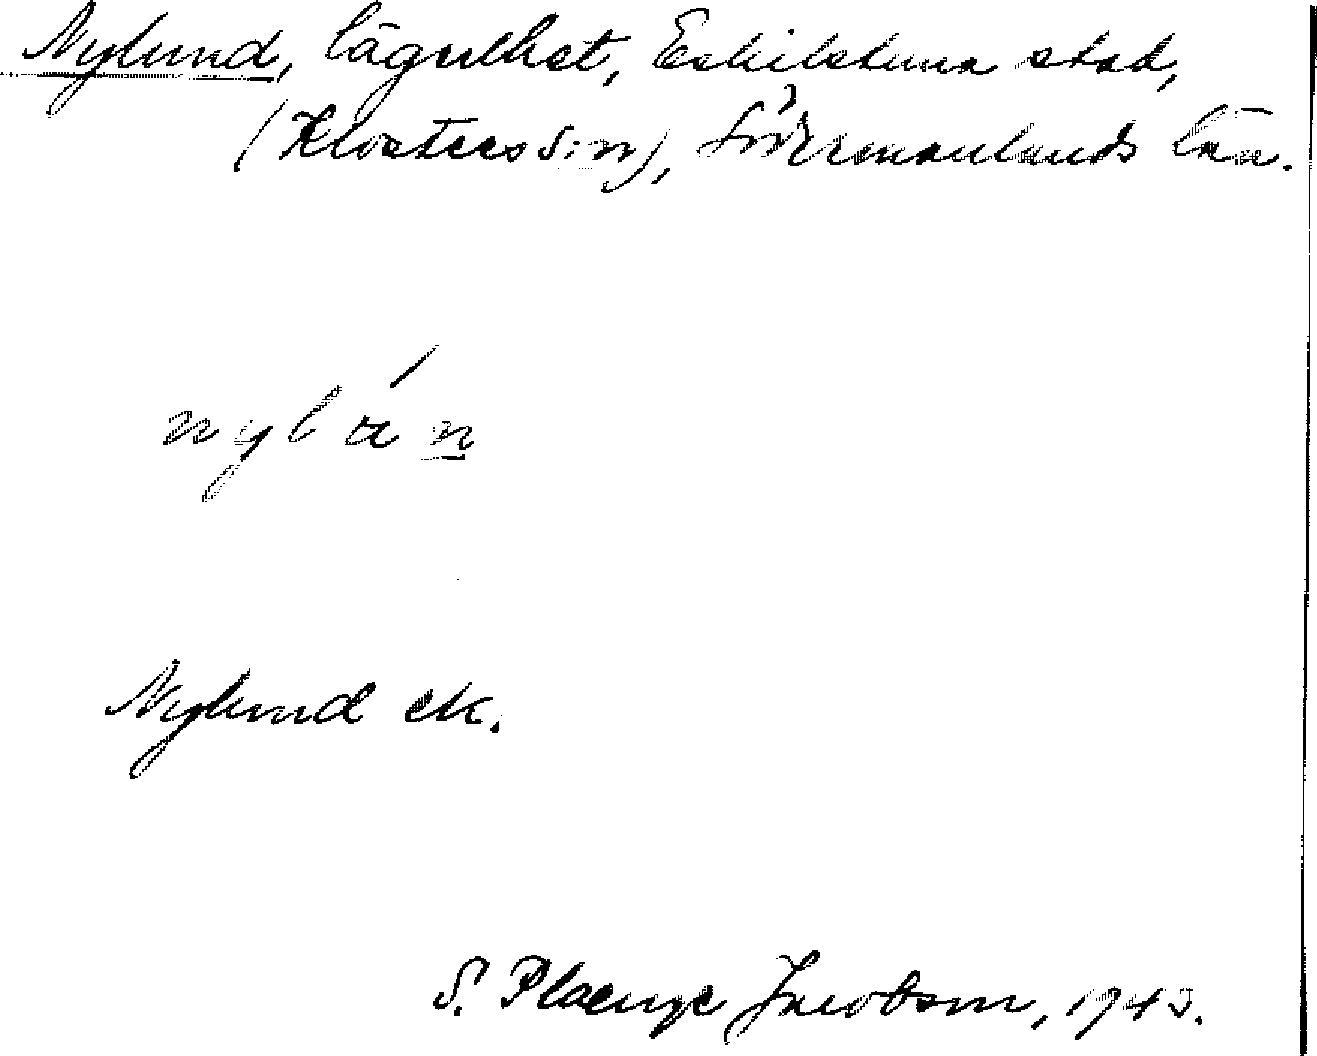 Nylund, lägenhet, Eskilstuna stad,
(Klosters s:n), Södermanlands län.
nylún
Nylund ek.
S. Plaenge Jacobson, 1945.